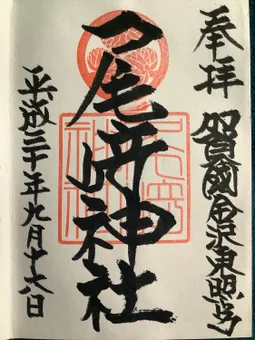 奉拝 加賀國金沢東照宮
尾﨑神社
平成三十年九月十六日